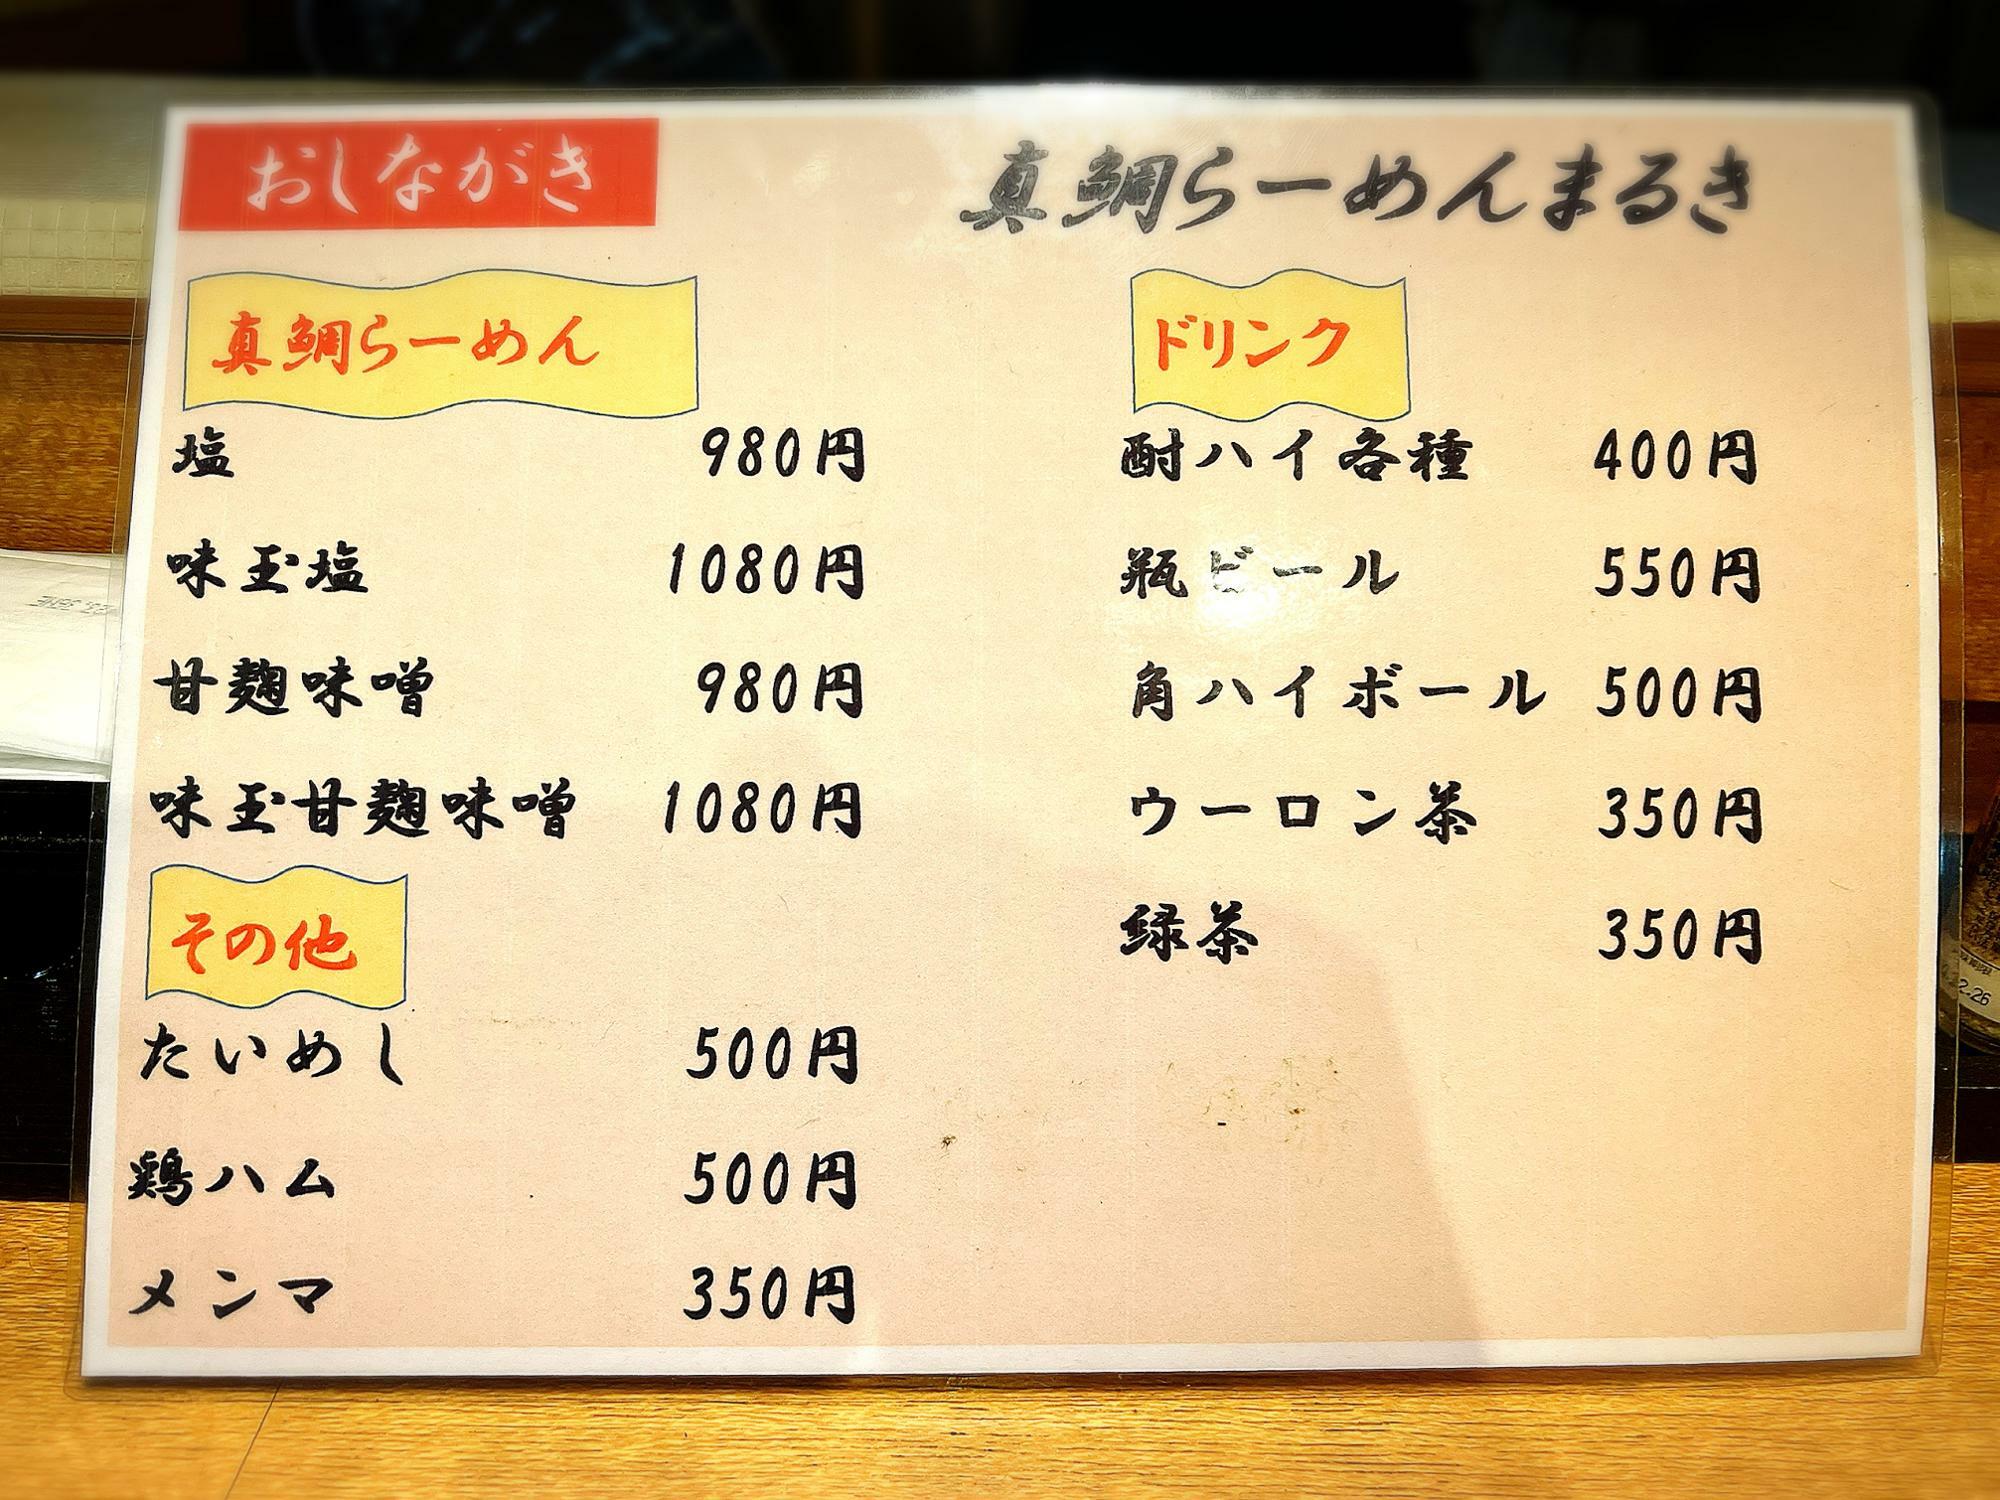 おしながき
真鯛らーめんまるき
真鯛らーめん
塩 980円
味玉塩 1080円
甘麹味噌 980円
味玉甘麹味噌 1080円
その他
たいめし 500円
鶏ハム 500円
メンマ 350円
ドリンク
酎ハイ各種 400円
瓶ビール 550円
角ハイボール 500円
ウーロン茶 350円
緑茶 350円